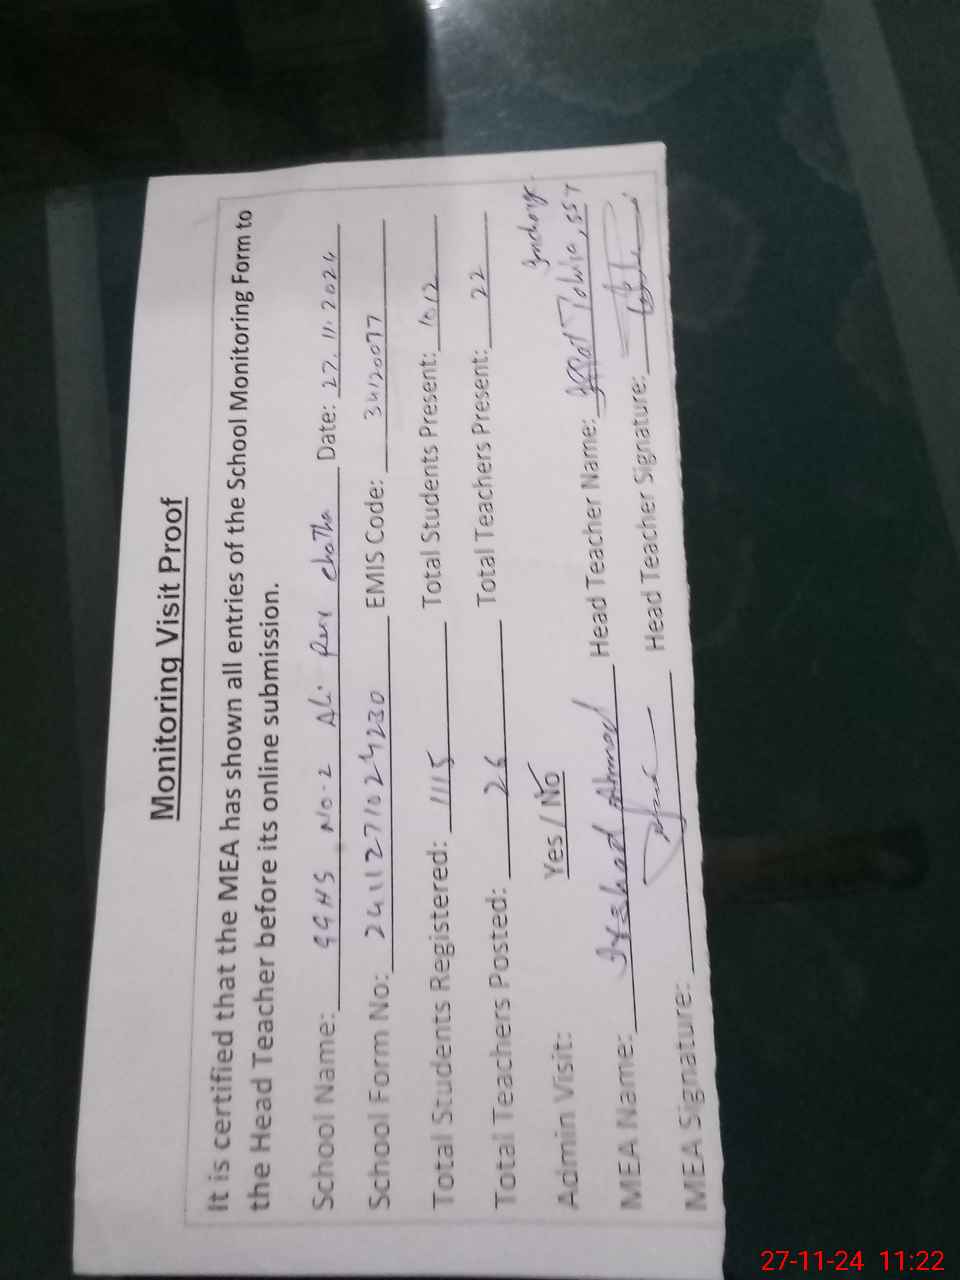 Monitoring Visit Proof
It is certified that the MEA has shown all entries of the School Monitoring Form to
the Head Teacher before its online submission.
School Name: GGHS No-2 Ali Pur Chatha Date: 27.11.2024
School Form No: 2411271024230 EMIS Code: 34120077
Total Students Registered: 1115 Total Students Present: 1012
Total Teachers Posted: 26 Total Teachers Present: 22
Admin Visit: Yes / No
Incharge
MEA Name: Ahmad Head Teacher Name: , SST
MEA Signature: Head Teacher Signature:
27-11-24 11:22